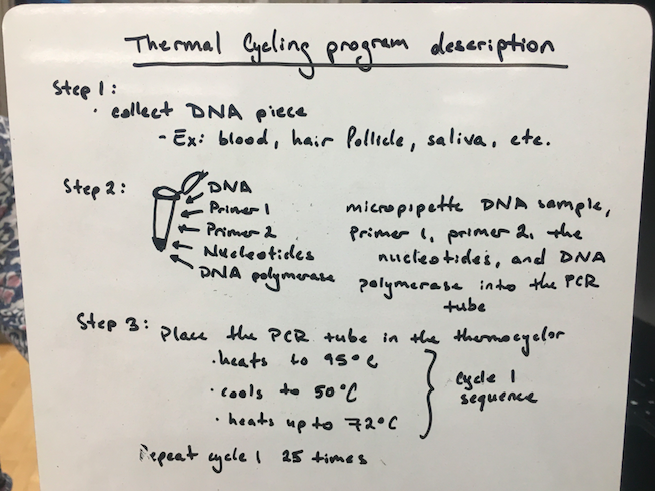 Thermal Cycling program description
Step 1:
· collect DNA piece
- Ex: blood, hair follicle, saliva, etc.
Step 2:
DNA
Primer 1
Primer 2
Nucleotides
DNA polymerase
micropipette DNA sample,
Primer 1, primer 2, the
nucleotides, and DNA
polymerase into the PCR
tube
Step 3: Place the PCR tube in the thermocyclor
· heats to 95°C
· cools to 50°C
· heats up to 72°C
cycle 1
sequence
Repeat cycle 1 25 times